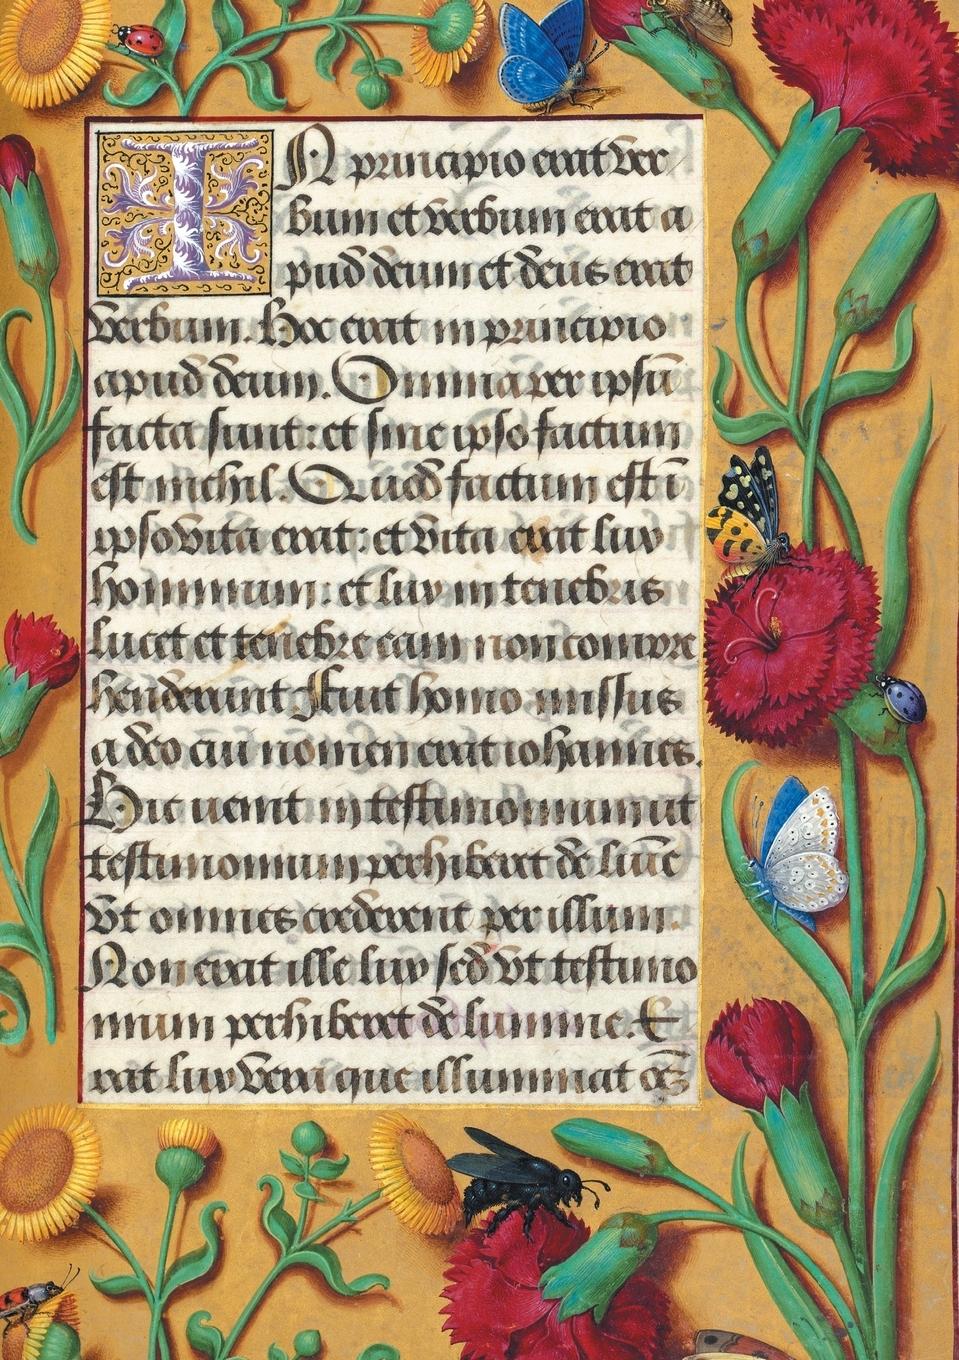 IN principio erat ver
bum et verbum erat a
pud deum et deus erat
verbum. Hoc erat in principio
apud deum. Omnia per ipsū
facta sunt: et sine ipso factum
est nichil. Quod factum est ī
ipso vita erat: et vita erat lux
hominum: et lux in tenebris
lucet et tenebre eam non compre
henderunt. Fuit homo missus
a deo cui nomen erat iohannes.
Hic uenit in testimonium ut
testimonium perhiberet de lumīe
vt omnes crederent per illum.
Non erat ille lux sed vt testimo
nium perhiberet de lumine. E
rat lux vera que illuminat oēz